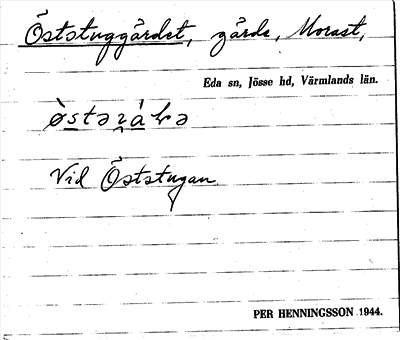 Öststuggärdet, gärde, Morast,
Eda sn, Jösse hd, Värmlands län.
Vid Öststugan
PER HENNINGSSON 1944.